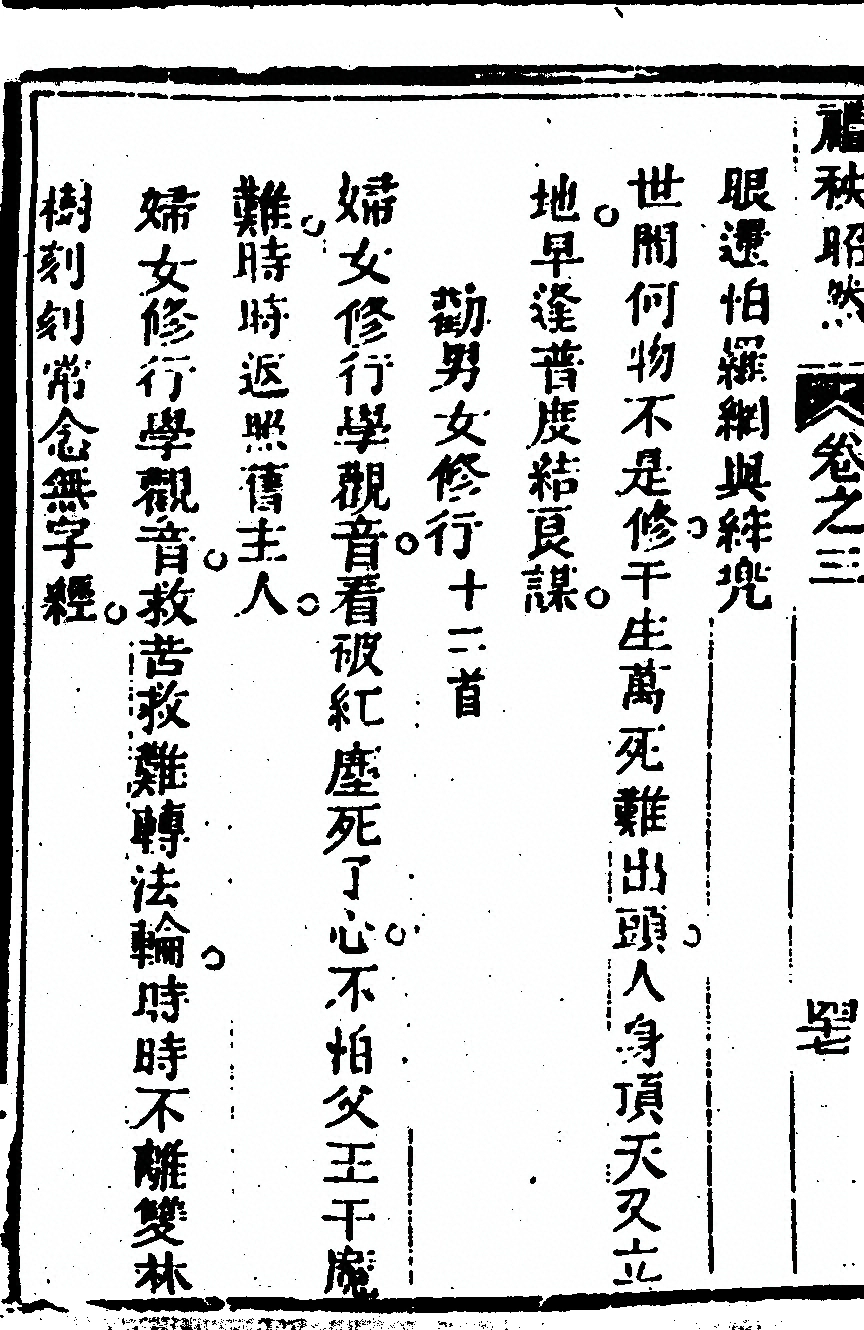 昭然 卷之三 四十七
眼還怕羅網與絆兜
世間何物不是修千生萬死難出頭人身頂天又立
地早逢普度結良謀
勸男女修行十二首
婦女修行學觀音看破紅塵死了心不怕父王千魔
難時時返照舊主人
婦女修行學觀音救苦救難轉法輪時時不離雙林
樹刻刻常念無字經